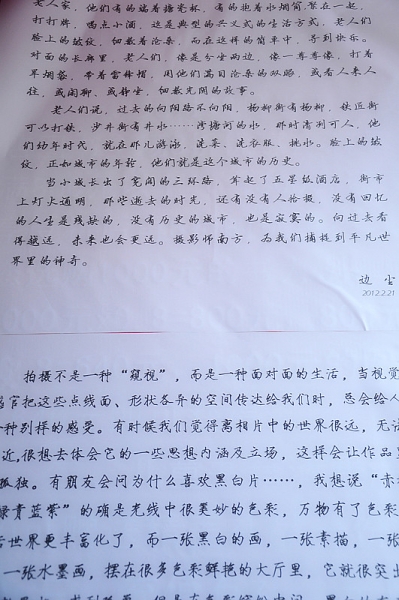 老人家，他们有的端着搪瓷杯，有的抱着水烟筒，聚在一起，
打打牌，喝点小酒，这是典型的兴义式的生活方式，老人们
脸上的皱纹，细数着沧桑，而在这样的简单中，寻到快乐。
对面的长廊里，老人们，像是分坐两边，像一尊尊像，打着
旱烟袋，带着雷锋帽，用他们篇目沧桑的双眼，或看人来人
往，或闲聊，或静坐，细数光阴的故事。
老人们说，过去的向阳路不向阳，杨柳街有杨柳，铁匠街
可以打铁，步井街有井水……湾塘河的水，那时清冽可人，他
们幼年时代，就在那儿游泳，洗菜，洗衣服，挑水。脸上的皱
纹，正如城市的年轮，他们就是这个城市的历史。
当小城长出了宽阔的三环路，耸起了五星级酒店，街市
上灯火通明，那些逝去的时光，还有没有人拾掇，没有回忆
的人生是残缺的，没有历史的城市，也是寂寞的。向过去看
得越远，未来也会更远。摄影师南方，为我们捕捉到平凡世
界里的神奇。
边尘
2012.2.21
拍摄不是一种“窥视”，而是一种面对面的生活，当视觉
器官把这些点线面、形状各异的空间传达给我们时，总会给人
一种别样的感受。有时候我们觉得离相片中的世界很远，无论
近，很想去体会它的一些思想内涵及立场，这样会让作品
孤独。有朋友会问为什么喜欢黑白片……，我想说“赤橙
绿青蓝紫”的确是光线中很美妙的色彩，万物有了色彩
世界更丰富化了，而一张黑白的画，一张素描，一张
一张水墨画，摆在很多色彩鲜艳的大厅里，它就很突出